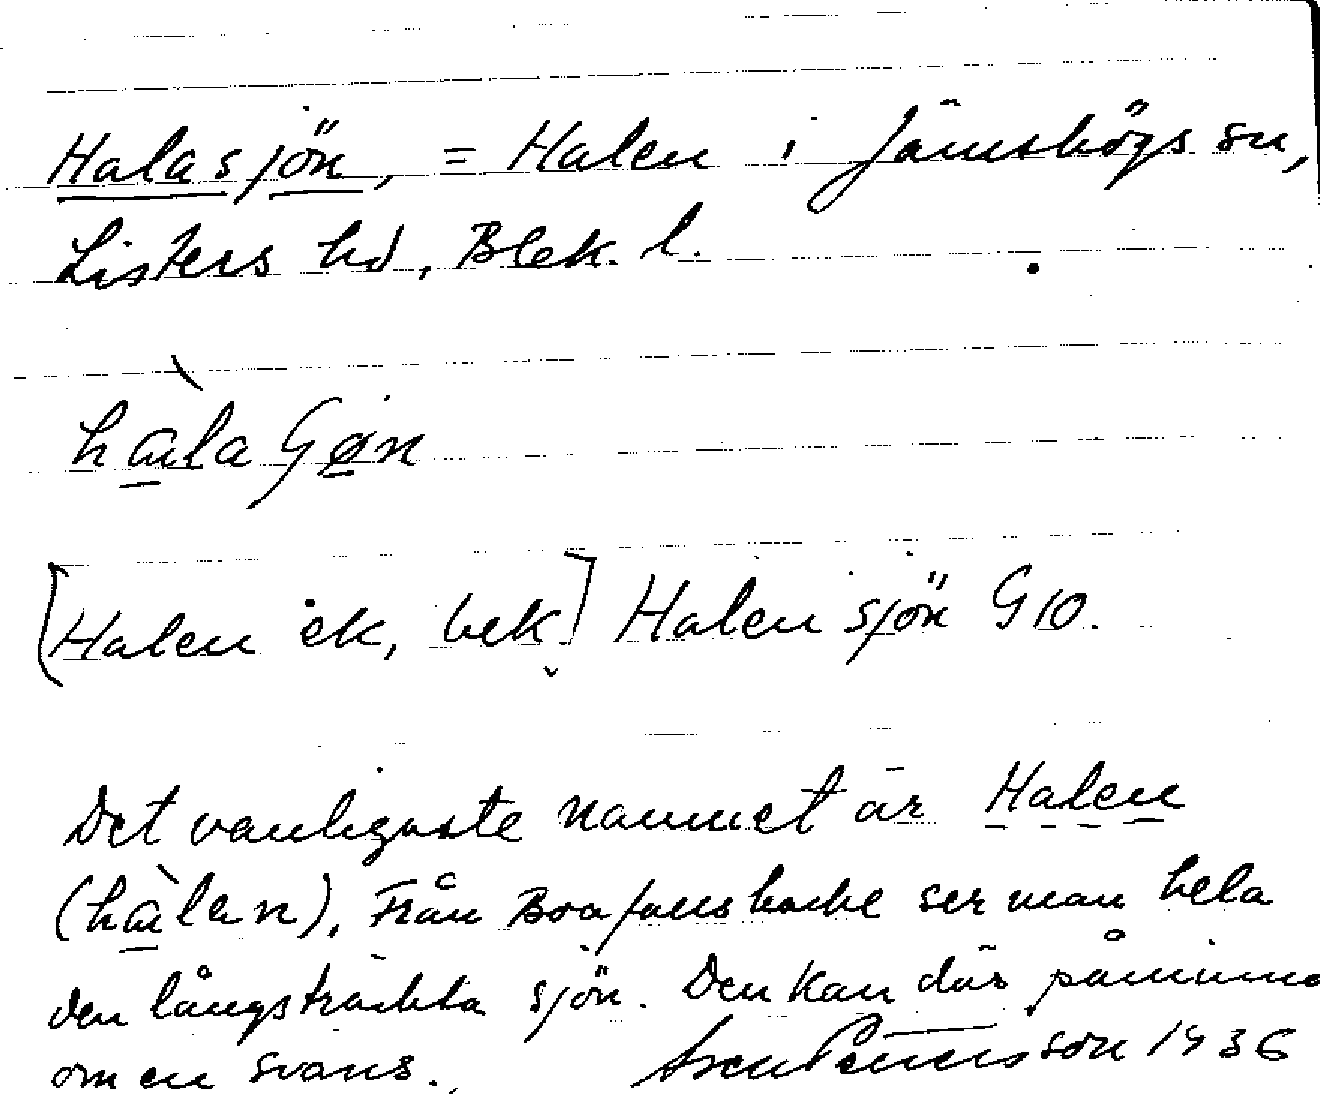 Halasjön, = Halen i Jämshögs sn,
Listers hd, Blek. l.
hàla
[Halen ek, bek] Halen sjön G10.
Det vanligaste namnet är Halen
(hàlen). Från ser man hela
den långsträckta sjön. Den kan där påminna
om en svans. Sven 1936